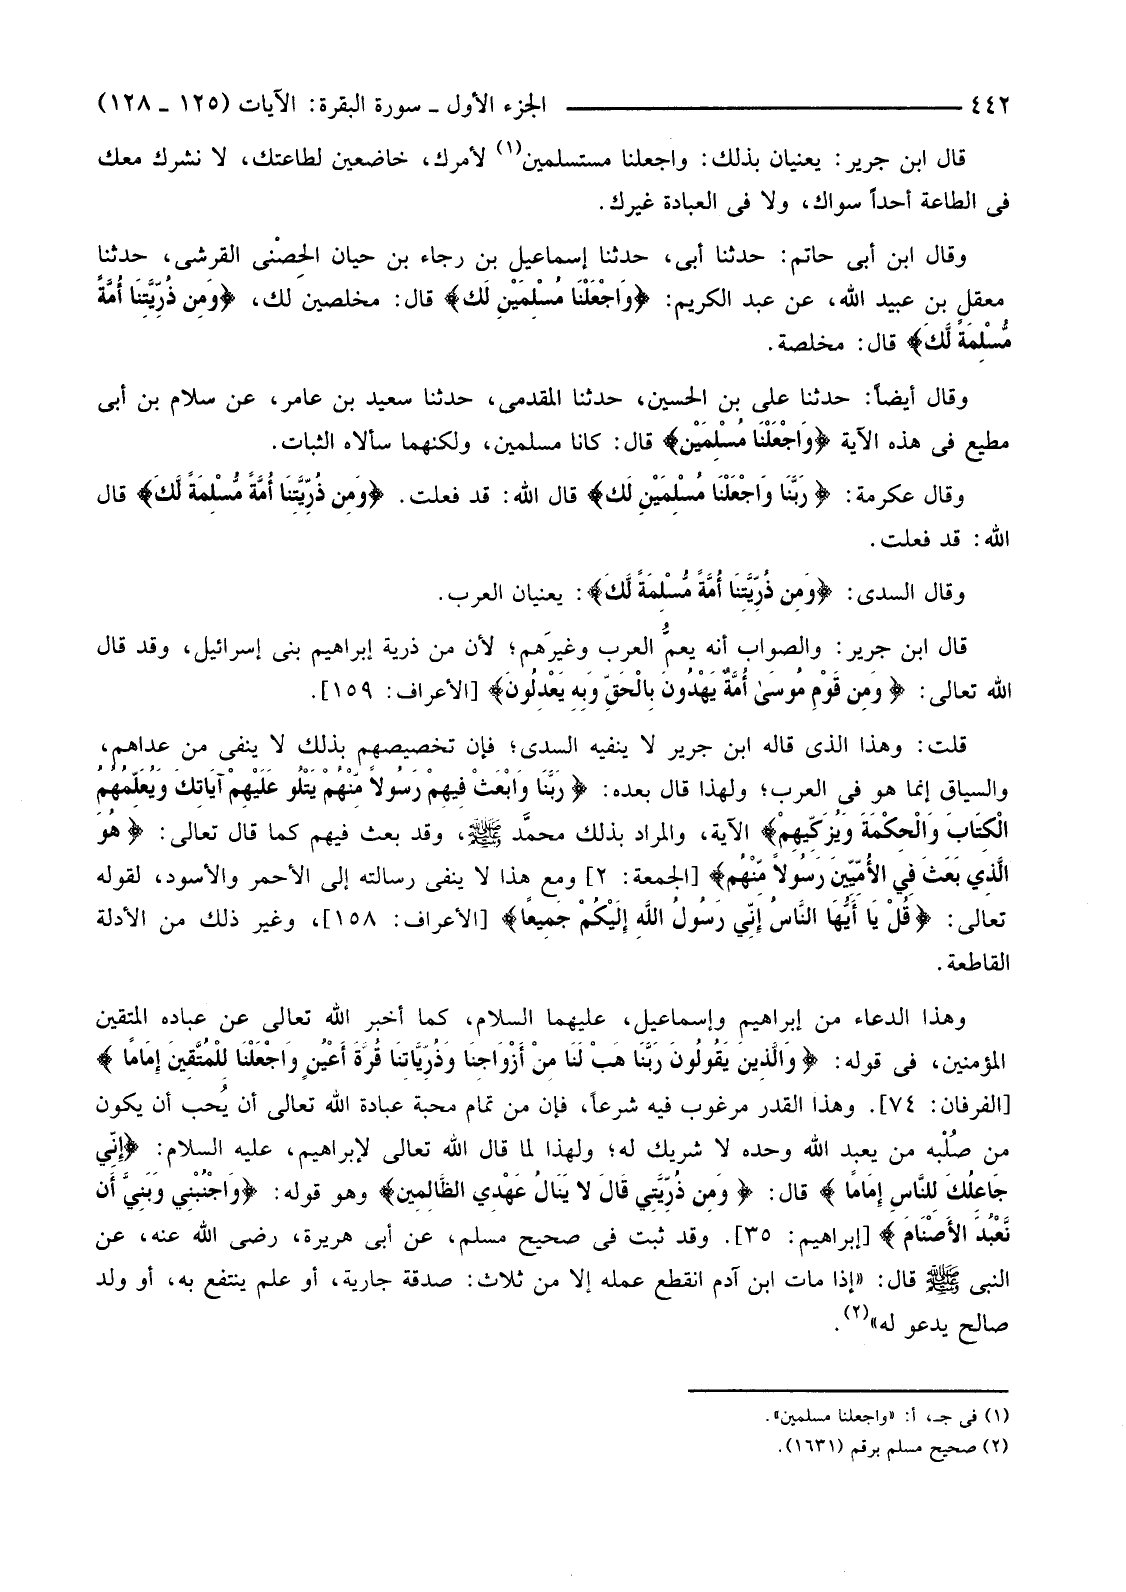 ٤٤٢ ــــــــــــــــ الجزء الأول ـ سورة البقرة: الآيات (١٢٥ ـ ١٢٨)
قال ابن جرير: يعنيان بذلك: واجعلنا مستسلمين(١) لأمرك، خاضعين لطاعتك، لا نشرك معك
فى الطاعة أحداً سواك، ولا فى العبادة غيرك.
وقال ابن أبى حاتم: حدثنا أبى، حدثنا إسماعيل بن رجاء بن حيان الحِصْنى القرشى، حدثنا
معقل بن عبيد الله، عن عبد الكريم: ﴿وَاجْعَلْنَا مُسْلِمَيْنِ لَك﴾ قال: مخلصين لك، ﴿وَمِن ذُرِّيَّتِنَا أُمَّةً
مُّسْلِمَةً لَّكَ﴾ قال: مخلصة.
وقال أيضاً: حدثنا على بن الحسين، حدثنا المقدمى، حدثنا سعيد بن عامر، عن سلام بن أبى
مطيع فى هذه الآية ﴿وَاجْعَلْنَا مُسْلِمَيْنِ﴾ قال: كانا مسلمين، ولكنهما سألاه الثبات.
وقال عكرمة: ﴿رَبَّنَا وَاجْعَلْنَا مُسْلِمَيْنِ لَك﴾ قال الله: قد فعلت. ﴿وَمِن ذُرِّيَّتِنَا أُمَّةً مُّسْلِمَةً لَّكَ﴾ قال
الله: قد فعلت.
وقال السدى: ﴿وَمِن ذُرِّيَّتِنَا أُمَّةً مُّسْلِمَةً لَّكَ﴾: يعنيان العرب.
قال ابن جرير: والصواب أنه يعمُّ العرب وغيرَهم؛ لأن من ذرية إبراهيم بنى إسرائيل، وقد قال
الله تعالى: ﴿وَمِن قَوْمِ مُوسَىٰ أُمَّةٌ يَهْدُونَ بِالْحَقِّ وَبِهِ يَعْدِلُونَ﴾ [الأعراف: ١٥٩].
قلت: وهذا الذى قاله ابن جرير لا ينفيه السدى؛ فإن تخصيصهم بذلك لا ينفى من عداهم،
والسياق إنما هو فى العرب؛ ولهذا قال بعده: ﴿رَبَّنَا وَابْعَثْ فِيهِمْ رَسُولاً مِّنْهُمْ يَتْلُو عَلَيْهِمْ آيَاتِكَ وَيُعَلِّمُهُمُ
الْكِتَابَ وَالْحِكْمَةَ وَيُزَكِّيهِمْ﴾ الآية، والمراد بذلك محمَّد ﷺ، وقد بعث فيهم كما قال تعالى: ﴿هُوَ
الَّذِي بَعَثَ فِي الأُمِّيِّينَ رَسُولاً مِّنْهُم﴾ [الجمعة: ٢] ومع هذا لا ينفى رسالته إلى الأحمر والأسود، لقوله
تعالى: ﴿قُلْ يَا أَيُّهَا النَّاسُ إِنِّي رَسُولُ اللَّهِ إِلَيْكُمْ جَمِيعًا﴾ [الأعراف: ١٥٨]، وغير ذلك من الأدلة
القاطعة.
وهذا الدعاء من إبراهيم وإسماعيل، عليهما السلام، كما أخبر الله تعالى عن عباده المتقين
المؤمنين، فى قوله: ﴿وَالَّذِينَ يَقُولُونَ رَبَّنَا هَبْ لَنَا مِنْ أَزْوَاجِنَا وَذُرِّيَّاتِنَا قُرَّةَ أَعْيُنٍ وَاجْعَلْنَا لِلْمُتَّقِينَ إِمَامًا﴾
[الفرقان: ٧٤]. وهذا القدر مرغوب فيه شرعاً، فإن من تمام محبة عبادة الله تعالى أن يُحب أن يكون
من صُلْبه من يعبد الله وحده لا شريك له؛ ولهذا لما قال الله تعالى لإبراهيم، عليه السلام: ﴿إِنِّي
جَاعِلُكَ لِلنَّاسِ إِمَامًا﴾ قال: ﴿وَمِن ذُرِّيَّتِي قَالَ لا يَنَالُ عَهْدِي الظَّالِمِين﴾ وهو قوله: ﴿وَاجْنُبْنِي وَبَنِيَّ أَن
نَّعْبُدَ الأَصْنَامَ﴾ [إبراهيم: ٣٥]. وقد ثبت فى صحيح مسلم، عن أبى هريرة، رضى الله عنه، عن
النبى ﷺ قال: «إذا مات ابن آدم انقطع عمله إلا من ثلاث: صدقة جارية، أو علم ينتفع به، أو ولد
صالح يدعو له»(٢).
(١) فى جـ، أ: «واجعلنا مسلمين».
(٢) صحيح مسلم برقم (١٦٣١).